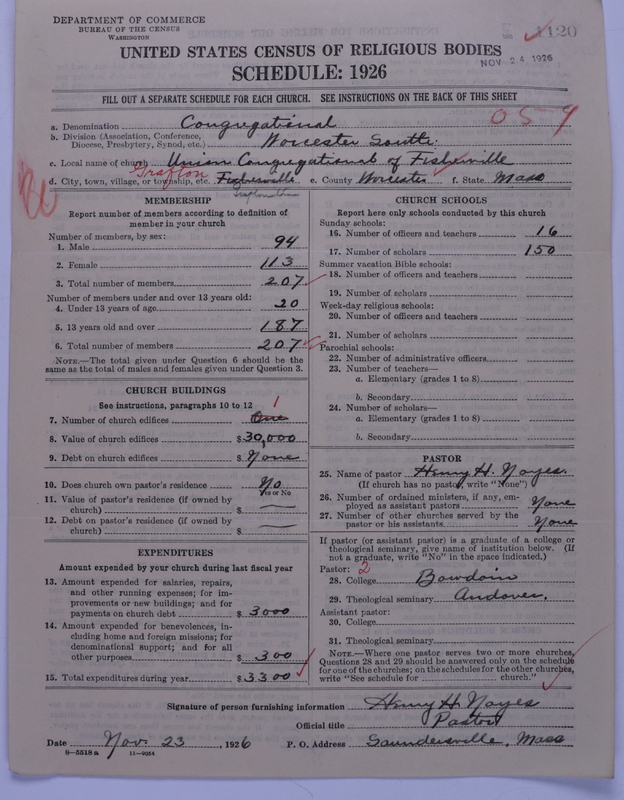 DEPARTMENT OF COMMERCE
BUREAU OF THE CENSUS
WASHINGTON
1120
UNITED STATES CENSUS OF RELIGIOUS BODIES
NOV 24 1926
SCHEDULE: 1926
FILL OUT A SEPARATE SCHEDULE FOR EACH CHURCH. SEE INSTRUCTIONS ON THE BACK OF THIS SHEET
059
a. Denomination Congregational
b. Division (Association, Conference, Diocese, Presbytery, Synod, etc.) Worcester South.
c. Local name of church Union Congregational of Fisherville
Grafton
d. City, town, village, or township, etc. Fisherville e. County Worcester f. State Mass
MEMBERSHIP
Report number of members according to definition of
member in your church
Number of members, by sex:
1. Male 94
2. Female 113
3. Total number of members 207
Number of members under and over 13 years old:
4. Under 13 years of age 20
5. 13 years old and over 187
6. Total number of members 207
NOTE.—The total given under Question 6 should be
same as the total of males and females given under Question 3.
CHURCH BUILDINGS
See instructions, paragraphs 10 to 12
7. Number of church edifices One 1
8. Value of church edifices $30,000
9. Debt on church edifices $None
10. Does church own pastor's residence No
Yes or No
11. Value of pastor's residence (if owned by
church) $ —
12. Debt on pastor's residence (if owned by
church) $ —
EXPENDITURES
Amount expended by your church during last fiscal year
13. Amount expended for salaries, repairs,
and other running expenses; for im-
provements or new buildings; and for
payments on church debt $ 3000
14. Amount expended for benevolences, in-
cluding home and foreign missions; for
denominational support; and for all
other purposes $ 300
15. Total expenditures during year $3300
CHURCH SCHOOLS
Report here only schools conducted by this church
Sunday schools:
16. Number of officers and teachers 16
17. Number of scholars 150
Summer vacation Bible schools:
18. Number of officers and teachers
19. Number of scholars
Week-day religious schools:
20. Number of officers and teachers
21. Number of scholars
Parochial schools:
22. Number of administrative officers
23. Number of teachers—
a. Elementary (grades 1 to 8)
b. Secondary
24. Number of scholars—
a. Elementary (grades 1 to 8)
b. Secondary
PASTOR
25. Name of pastor Henry H. Noyes.
(If church has no pastor, write "None")
26. Number of ordained ministers, if any, em-
ployed as assistant pastors None
27. Number of other churches served by the
pastor or his assistants None
If pastor (or assistant pastor) is a graduate of a college or
theological seminary, give name of institution below. (If
not a graduate, write "No" in the space indicated.)
Pastor: 2
28. College Bowdoin
29. Theological seminary Andover.
Assistant pastor:
30. College
31. Theological seminary
NOTE.—Where one pastor serves two or more churches,
Questions 28 and 29 should be answered only on the schedule
for one of the churches; on the schedules for the other churches,
write "See schedule for church."
Signature of person furnishing information Henry H Noyes
Official title Pastor
Date Nov. 23, 1926 P. O. Address Saundersville, Mass
8—5518a 11—9054